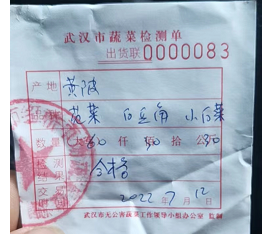 武汉市蔬菜检测单
出货联 0000083
产地 黄陂
菜 白豆角 小白菜
数量 60 仟 佰 拾 公斤
检测结果 合格
2022年7月12日
武汉市无公害蔬菜工作领导小组办公室 监制